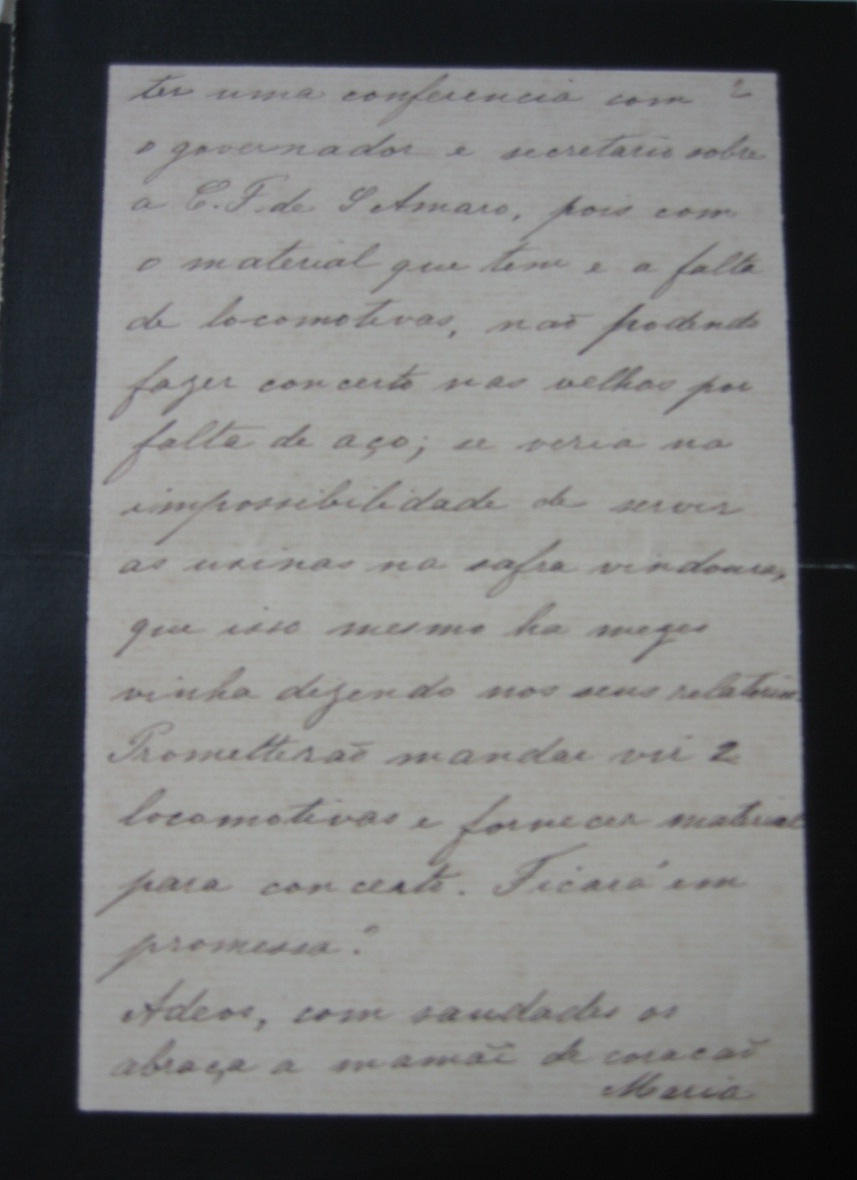 ter uma conferencia com 2
o governador e secretario sobre
a E. F. de S Amaro, pois com
o material que tem e a falta
de locomotivas, naõ podendo
fazer concerto nas velhas por
falta de aço; se veria na
impossibilidade de servir
as usinas na safra vindoura,
que isso mesmo ha mezes
vinha dizendo nos seus relatorios.
Prometteraõ mandar vir 2
locomotivas e fornecer material
para concerto. Ficará em
promessa?
Adeos, com saudades os
abraça a mamãe de coracaõ
Maria